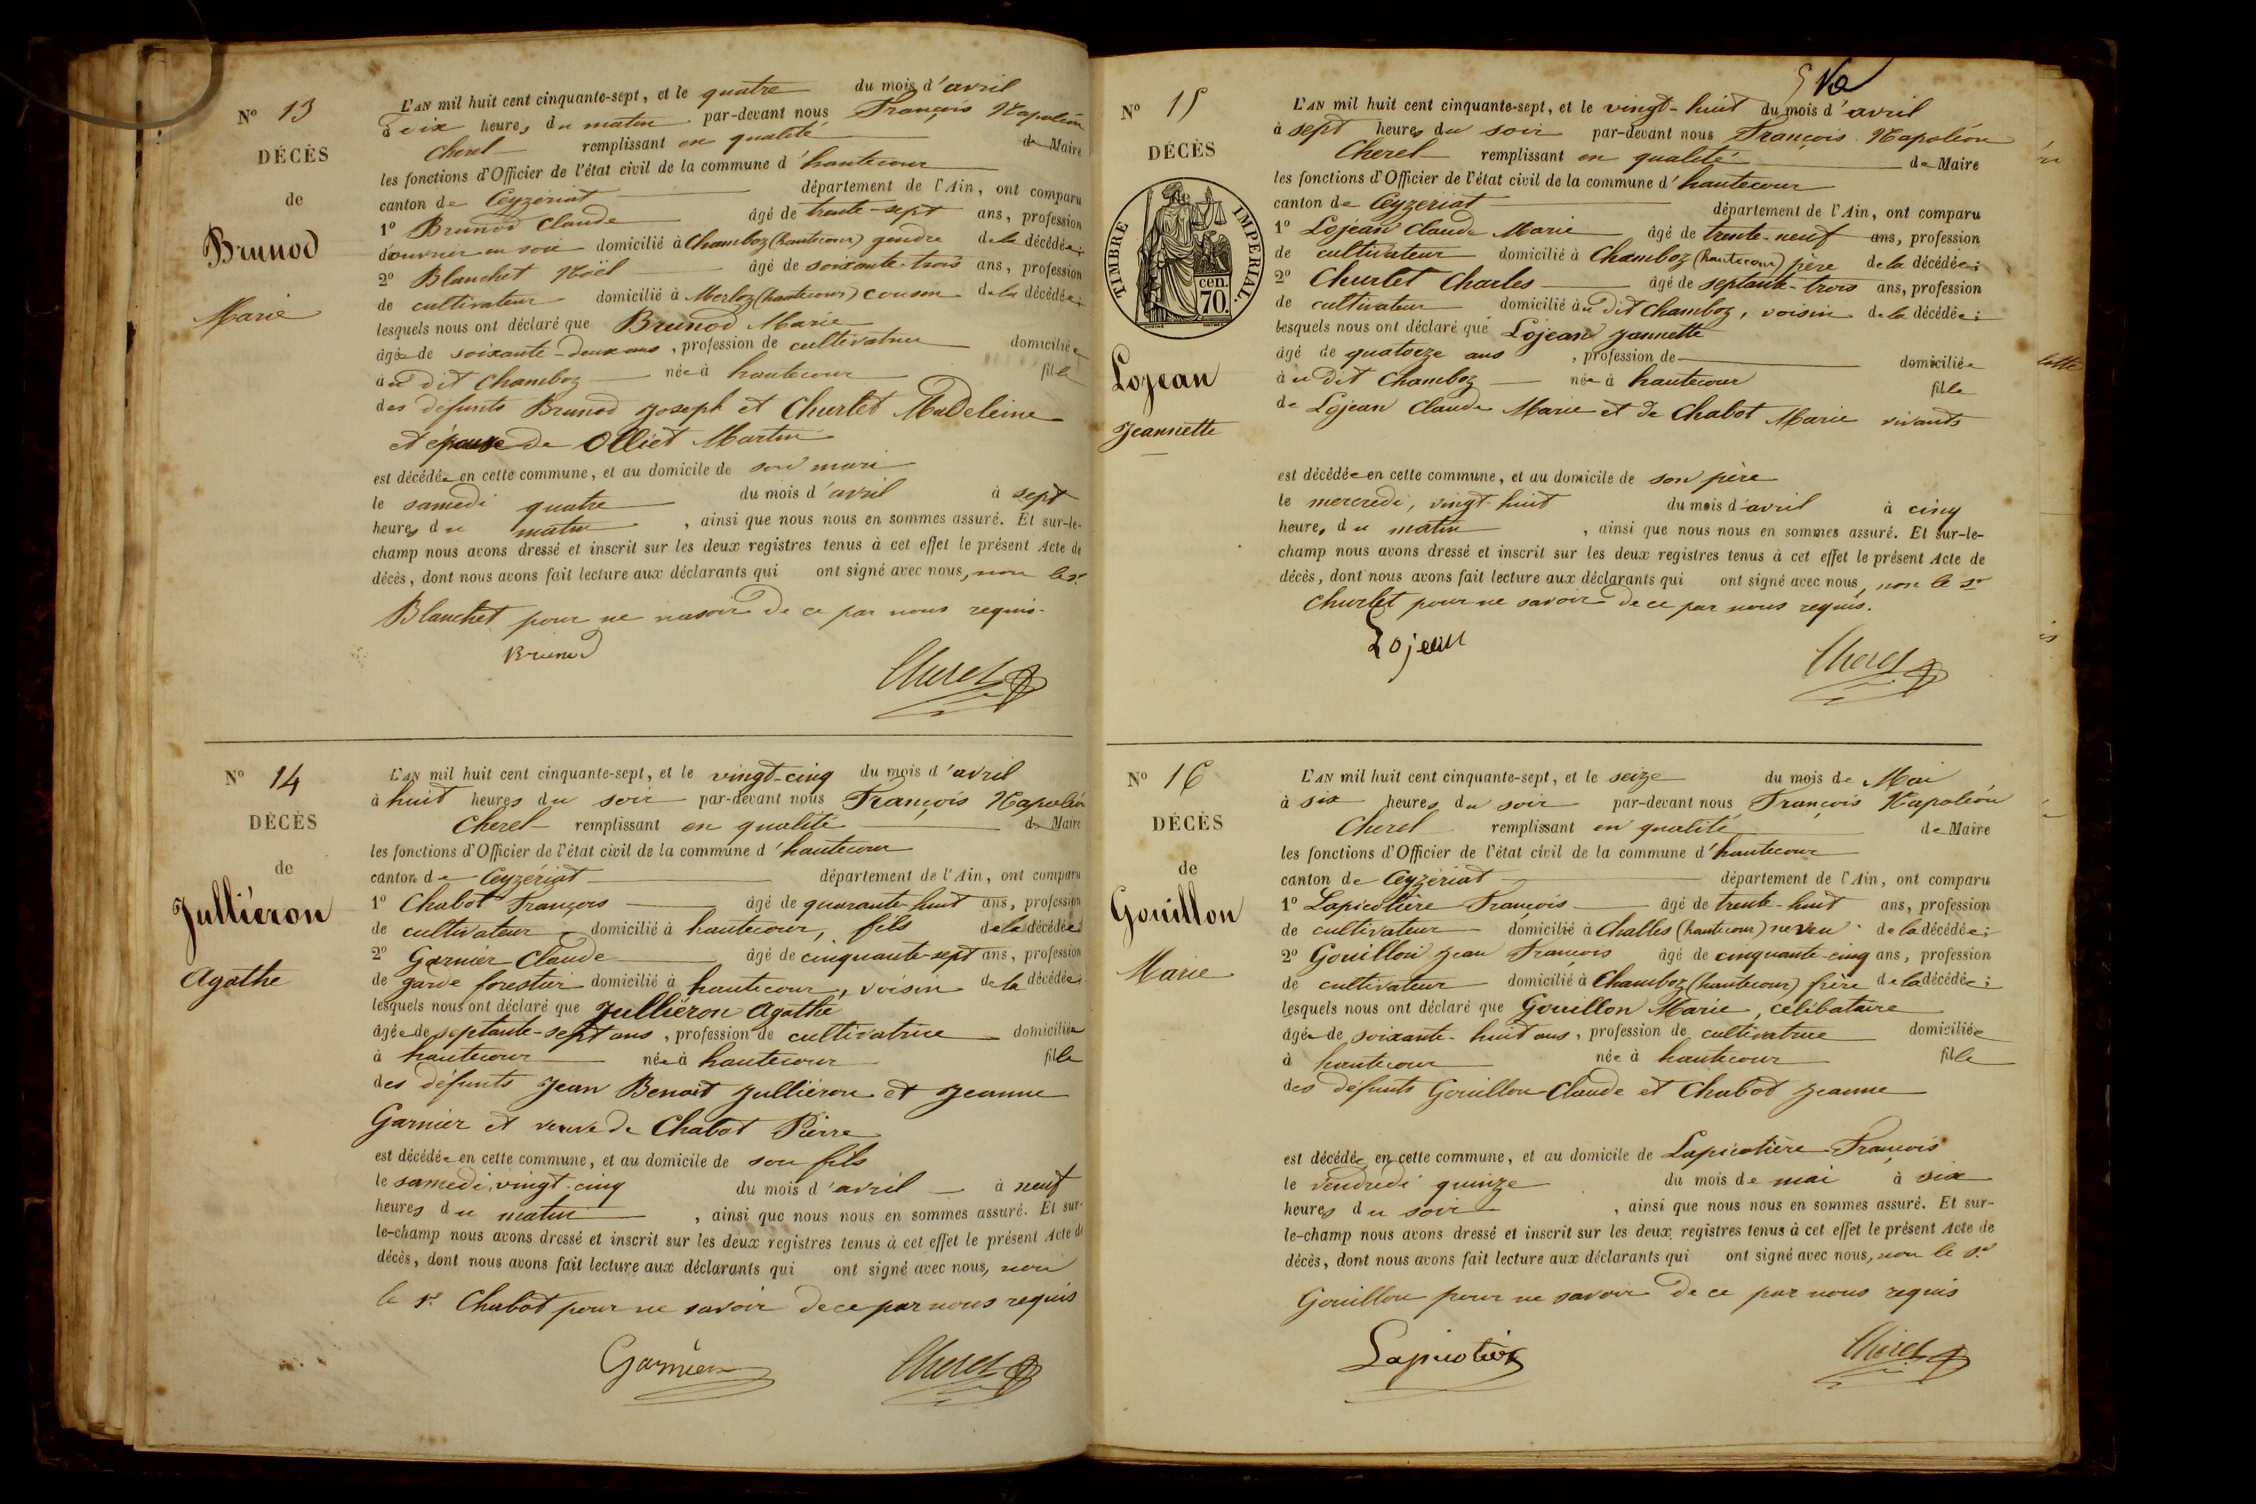 Nº 13
DÉCÈS
de
Brunod
Marie
L'AN mil huit cent cinquante-sept, et le quatre du mois d'avril
à dix heures du matin par-devant nous François Napoléon
Cherel remplissant en qualité de Maire
les fonctions d'Officier de l'état civil de la commune d'hautecour
canton de Ceyzériat département de l'Ain, ont comparu
1º Brunod Claude âgé de trente-sept ans, profession
d'ouvrier en soie domicilié à Chamboz (hautecour) gendre de la décédée;
2º Blanchet Noël âgé de soixante-trois ans, profession
de cultivateur domicilié à Merloz (hautecour) cousin de la décédée;
lesquels nous ont déclaré que Brunod Marie
âgée de soixante-deux ans, profession de cultivatrice domiciliée
au dit Chamboz née à hautecour fille
des défunts Brunod Joseph et Churlet Madeleine
et épouse de Olliet Martin
est décédée en cette commune, et au domicile de son mari
le samedi quatre du mois d'avril à sept
heures du matin, ainsi que nous nous en sommes assuré. Et sur-le-
champ nous avons dressé et inscrit sur les deux registres tenus à cet effet le présent Acte de
décès, dont nous avons fait lecture aux déclarants qui ont signé avec nous, non le sr
Blanchet pour ne savoir de ce par nous requis.
Brunod
Cherel
Nº 14
DÉCÈS
de
Julliéron
Agathe
L'AN mil huit cent cinquante-sept, et le vingt-cinq du mois d'avril
à huit heures du soir par-devant nous François Napoléon
Cherel remplissant en qualité de Maire
les fonctions d'Officier de l'état civil de la commune d'hautecour
canton de Ceyzériat département de l'Ain, ont comparu
1º Chabot François âgé de quarante-huit ans, profession
de cultivateur domicilié à hautecour, fils de la décédée
2º Garnier Claude âgé de cinquante-sept ans, profession
de garde forestier domicilié à hautecour, voisin de la décédée;
lesquels nous ont déclaré que Julliéron Agathe
âgée de septante-sept ans, profession de cultivatrice domiciliée
à hautecour née à hautecour fille
des défunts Jean Benoît Julliéron et Jeanne
Garnier et veuve de Chabot Pierre
est décédée en cette commune, et au domicile de son fils
le samedi, vingt-cinq du mois d'avril à neuf
heures du matin, ainsi que nous nous en sommes assuré. Et sur-
le-champ nous avons dressé et inscrit sur les deux registres tenus à cet effet le présent Acte de
décès, dont nous avons fait lecture aux déclarants qui ont signé avec nous, non
le sr Chabot pour ne savoir de ce par nous requis
Garnier
Cherel
Nº 15
DÉCÈS
TIMBRE IMPÉRIAL.
cen.
70.
Lojean
Jeannette
L'AN mil huit cent cinquante-sept, et le vingt-huit du mois d'avril
à sept heures du soir par-devant nous François Napoléon
Cherel remplissant en qualité de Maire
les fonctions d'Officier de l'état civil de la commune d'hautecour
canton de Ceyzériat département de l'Ain, ont comparu
1º Lojean Claude Marie âgé de trente-neuf ans, profession
de cultivateur domicilié à Chamboz (hautecour) père de la décédée;
2º Churlet Charles âgé de septante-trois ans, profession
de cultivateur domicilié au dit Chamboz, voisin de la décédée;
lesquels nous ont déclaré que Lojean Jannette
âgé de quatorze ans, profession de domiciliée
au dit Chamboz née à hautecour fille
de Lojean Claude Marie et de Chabot Marie vivants
est décédée en cette commune, et au domicile de son père
le mercredi, vingt-huit du mois d'avril à cinq
heures du matin, ainsi que nous nous en sommes assuré. Et sur-le-
champ nous avons dressé et inscrit sur les deux registres tenus à cet effet le présent Acte de
décès, dont nous avons fait lecture aux déclarants qui ont signé avec nous, non le sr
Churlet pour ne savoir de ce par nous requis.
Lojean
Cherel
Nº 16
DÉCÈS
de
Gouillon
Marie
L'AN mil huit cent cinquante-sept, et le seize du mois de Mai
à six heures du soir par-devant nous François Napoléon
Cherel remplissant en qualité de Maire
les fonctions d'Officier de l'état civil de la commune d'hautecour
canton de Ceyzériat département de l'Ain, ont comparu
1º Lapicotière François âgé de trente-huit ans, profession
de cultivateur domicilié à Challes (hautecour) neveu de la décédée;
2º Gouillon Jean François âgé de cinquante-cinq ans, profession
de cultivateur domicilié à Chamboz (hautecour) frère de la décédée;
lesquels nous ont déclaré que Gouillon Marie, célibataire
âgée de soixante-huit ans, profession de cultivatrice domiciliée
à hautecour née à hautecour fille
des défunts Gouillon Claude et Chabot Jeanne
est décédée en cette commune, et au domicile de Lapicotière François
le vendredi quinze du mois de mai à six
heures du soir, ainsi que nous nous en sommes assuré. Et sur-
le-champ nous avons dressé et inscrit sur les deux registres tenus à cet effet le présent Acte de
décès, dont nous avons fait lecture aux déclarants qui ont signé avec nous, non le sr
Gouillon pour ne savoir de ce par nous requis
Lapicotière
Cherel